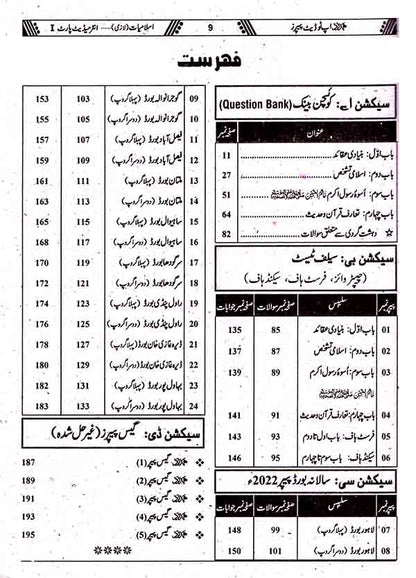 اپ ٹو ڈیٹ پیپرز
9
اسلامیات (لازمی)۔۔۔ انٹرمیڈیٹ پارٹ I
فہرست
سیکشن اے: کوئسچن بینک (Question Bank)
عنوان صفحہ نمبر
باب اوّل: بنیادی عقائد 11
باب دوم: اسلامی تشخص 27
باب سوم: اُسوۂ رسول اکرم 51
باب چہارم: تعارف قرآن و حدیث 64
دہشت گردی سے متعلق سوالات 82
سیکشن بی: سیلف ٹیسٹ
(چیپٹر وائز، فرسٹ ہاف، سیکنڈ ہاف)
پیپر نمبر سلیبس صفحہ نمبر سوالات صفحہ نمبر جوابات
01 باب اوّل: بنیادی عقائد 85 135
02 باب دوم: اسلامی تشخص 87 137
03 باب سوم: اُسوۂ رسول اکرم 89 139
04 باب چہارم: تعارف قرآن و حدیث 91 141
05 فرسٹ ہاف: باب اول تا دوم 93 143
06 سیکنڈ ہاف: باب سوم تا چہارم 95 146
سیکشن سی: سالانہ بورڈ پیپر 2022ء
پیپر نمبر سلیبس صفحہ نمبر سوالات صفحہ نمبر جوابات
07 لاہور بورڈ (پہلا گروپ) 99 148
08 لاہور بورڈ (دوسرا گروپ) 101 150
09 گوجرانوالہ بورڈ (پہلا گروپ) 103 153
10 گوجرانوالہ بورڈ (دوسرا گروپ) 105 155
11 فیصل آباد بورڈ (پہلا گروپ) 107 157
12 فیصل آباد بورڈ (دوسرا گروپ) 109 159
13 ملتان بورڈ (پہلا گروپ) 111 161
14 ملتان بورڈ (دوسرا گروپ) 113 163
15 ساہیوال بورڈ (پہلا گروپ) 115 165
16 ساہیوال بورڈ (دوسرا گروپ) 117 168
17 سرگودھا بورڈ (پہلا گروپ) 119 170
18 سرگودھا بورڈ (دوسرا گروپ) 121 172
19 راولپنڈی بورڈ (پہلا گروپ) 123 174
20 راولپنڈی بورڈ (دوسرا گروپ) 125 176
21 ڈیرہ غازی خان بورڈ (پہلا گروپ) 127 178
22 ڈیرہ غازی خان بورڈ (دوسرا گروپ) 129 180
23 بہاولپور بورڈ (پہلا گروپ) 131 182
24 بہاولپور بورڈ (دوسرا گروپ) 133 183
سیکشن ڈی: گیس پیپرز (غیر حل شدہ)
گیس پیپر (1) 187
گیس پیپر (2) 189
گیس پیپر (3) 191
گیس پیپر (4) 193
گیس پیپر (5) 195